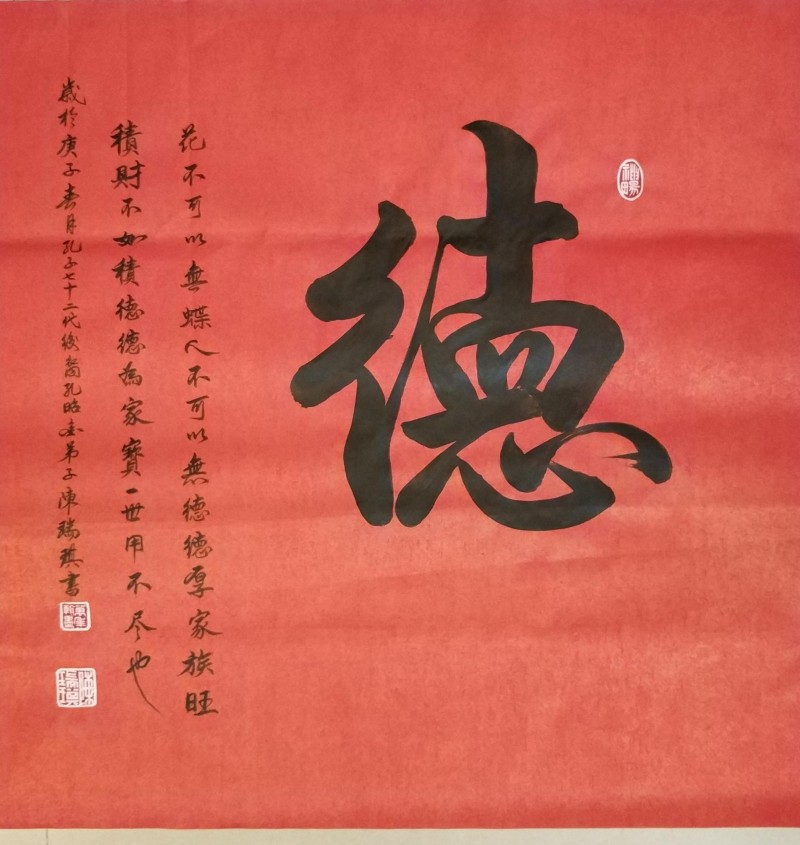 德
花不可以無蝶人不可以無德德厚家族旺
積財不如積德德為家寶一世用不尽也
歲於庚子春月孔子七十二代後裔孔昭金弟子陳瑞琪書